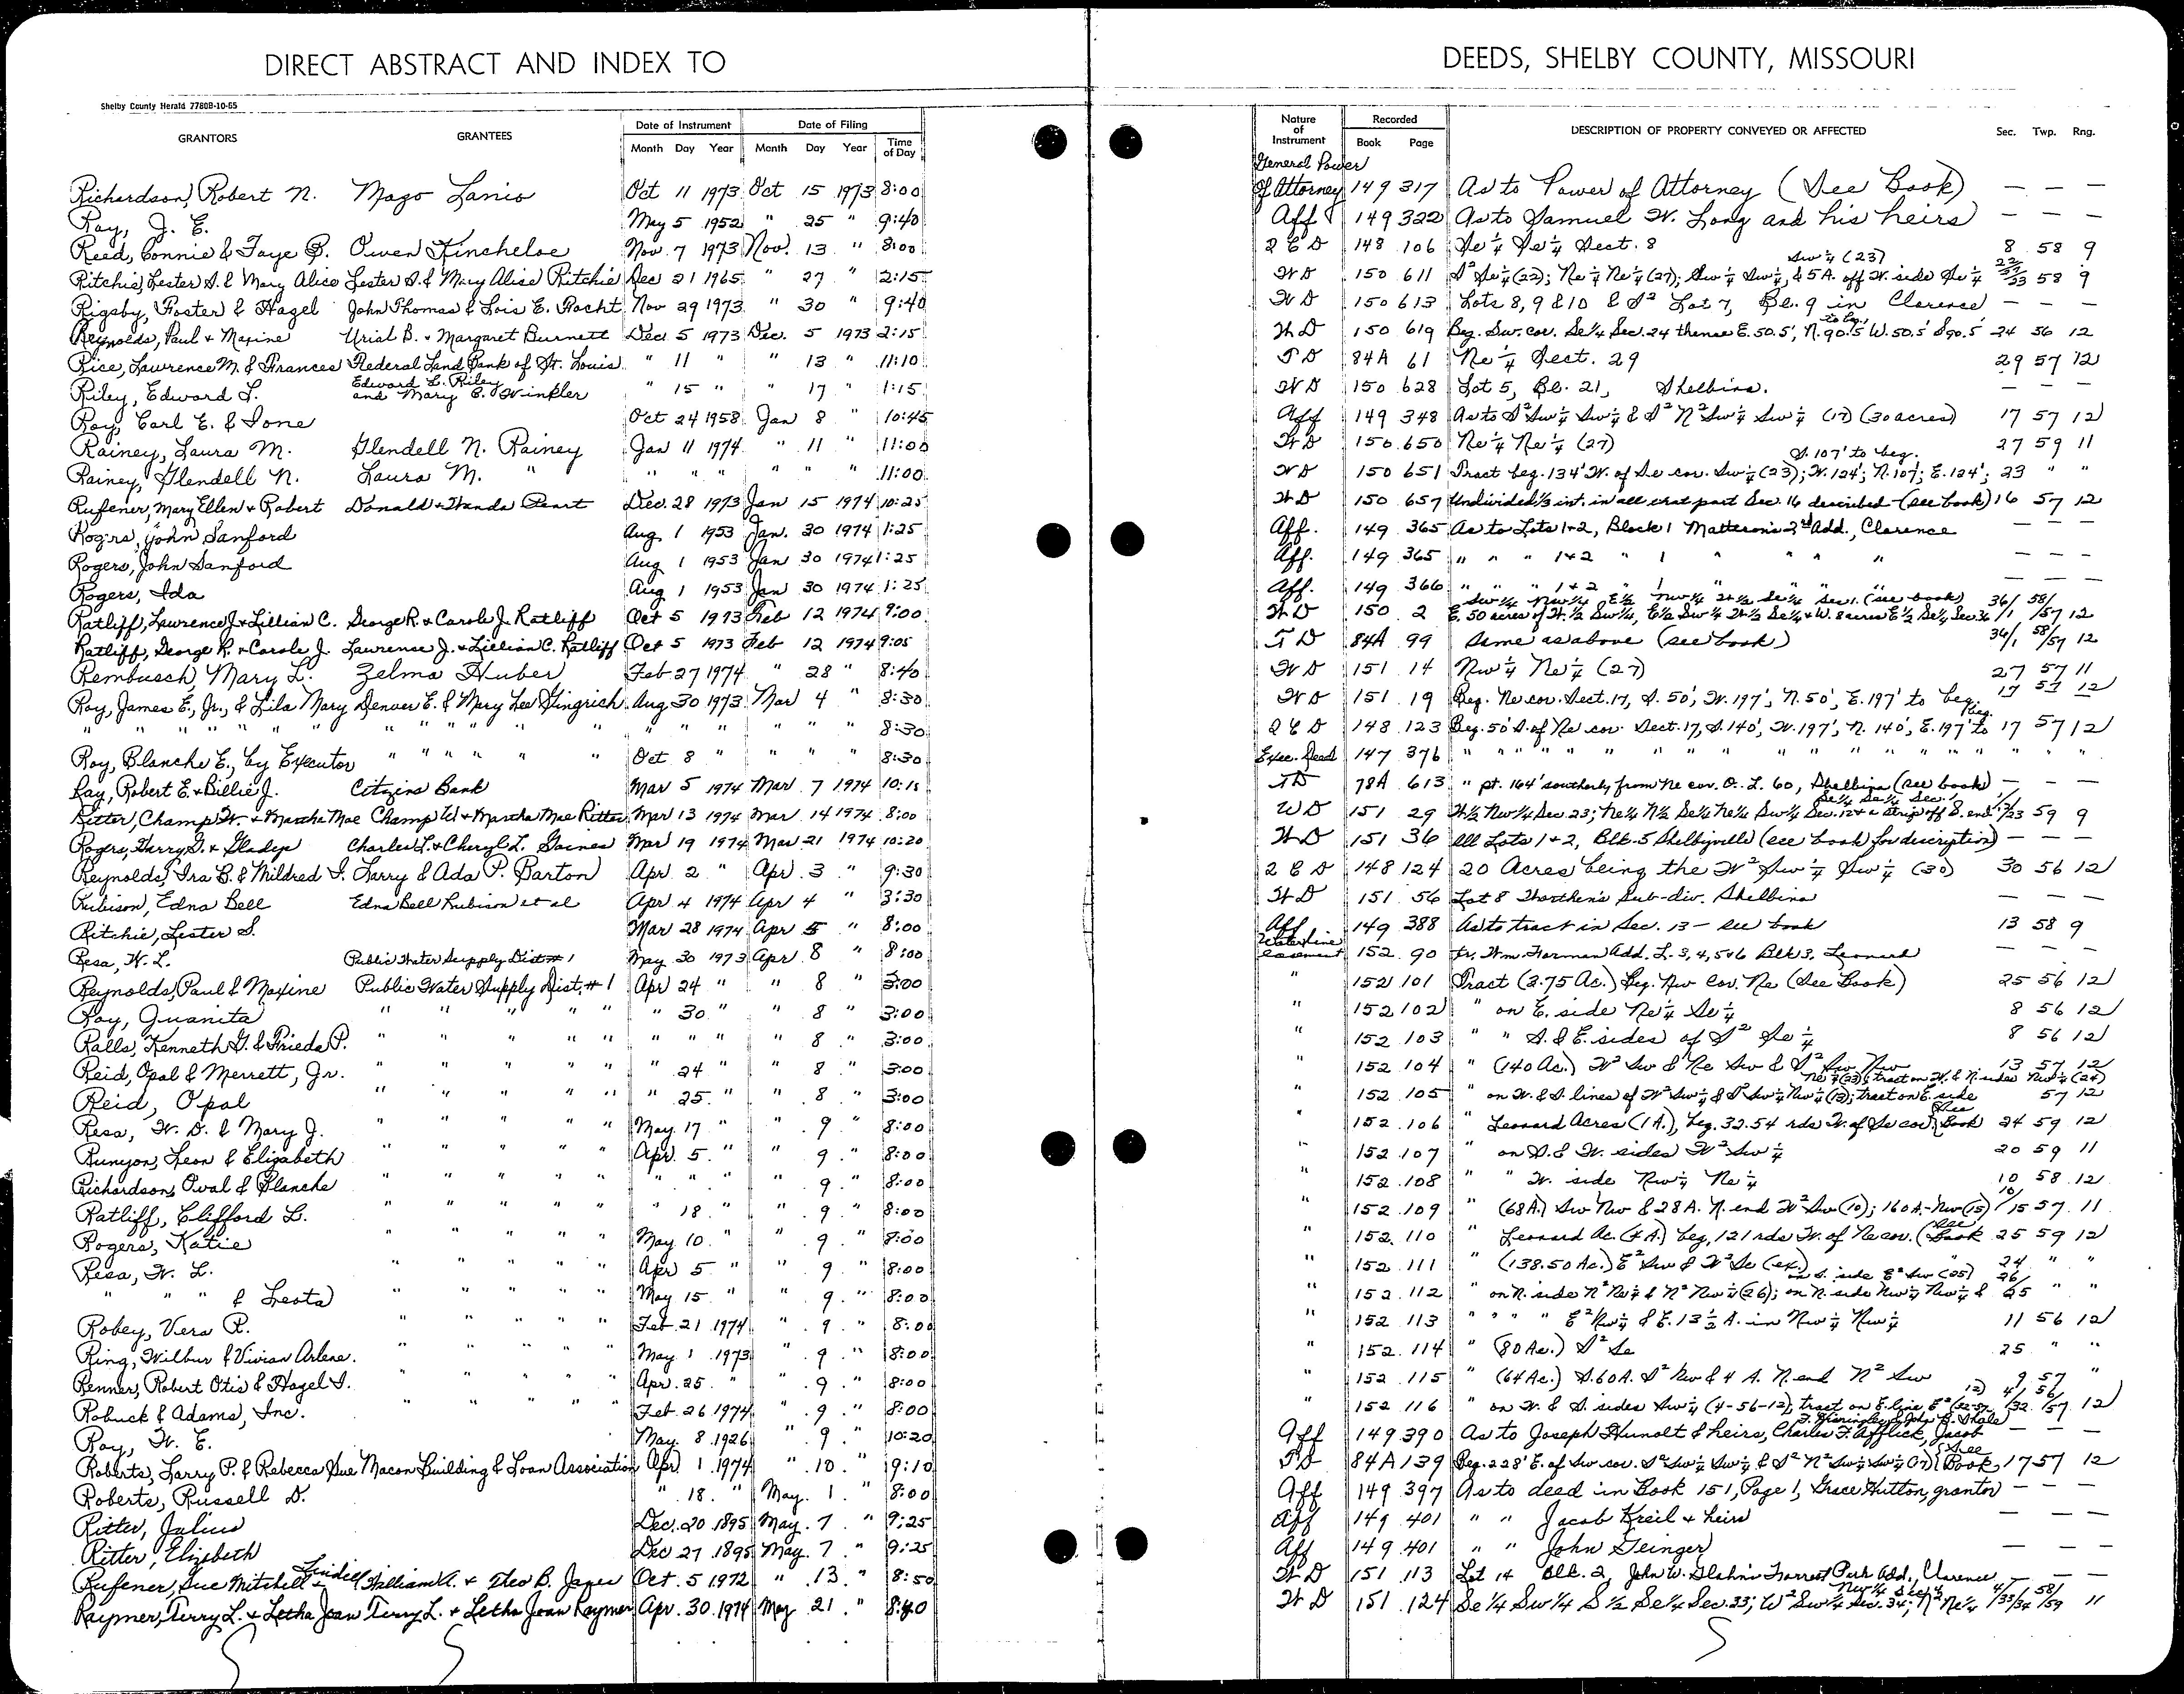 DIRECT ABSTRACT AND INDEX TO DEEDS, SHELBY COUNTY, MISSOURI
Shelby County Herald 7780B-10-65
GRANTORS GRANTEES Date of Instrument Month Day Year Date of Filing Month Day Year Time of Day Nature of Instrument Recorded Book Page DESCRIPTION OF PROPERTY CONVEYED OR AFFECTED Sec. Twp. Rng.
Richardson, Robert N. Mazo Lanio Oct 11 1973 Oct 15 1973 8:00 General Power Of Attorney 149 317 As to Power of Attorney (See Book) — — —
Roy, J. E. May 5 1952 " 25 " 9:40 Aff 149 322 As to Samuel W. Long and his heirs — — —
Reed, Connie & Faye B. Owen Kincheloe Nov. 7 1973 Nov. 13 " 8:00 Q C D 148 106 Se ¼ Se ¼ Sect. 8 8 58 9
Ritchie, Lester S. & Mary Alice Lester S. & Mary Alice Ritchie Dec 21 1965 " 27 " 2:15 W D 150 611 S² Se ¼ (22); Ne ¼ Ne ¼ (27); Sw ¼ Sw ¼, & 5 A. off W. side Se ¼ Sw ¼ (23) 58 9
Rigsby, Foster & Hazel John Thomas & Lois E. Hocht Nov 29 1973 " 30 " 9:40 W D 150 613 Lots 8, 9 & 10 & S² Lot 7, Bl. 9 in Clarence — — —
Reynolds, Paul + Maxine Urial B. + Margaret Burnett Dec. 5 1973 Dec. 5 1973 2:15 W D 150 619 Beg. Sw. cor. Se ¼ Sec. 24 thence E. 50.5', N. 90.5' W. 50.5' S 90.5' to beg. 24 56 12
Rice, Lawrence M. & Frances Federal Land Bank of St. Louis " 11 " " 13 " 11:10 T D 84A 61 Ne ¼ Sect. 29 29 57 12
Riley, Edward L. Edward L. Riley and Mary E. Winkler " 15 " " 17 " 1:15 W D 150 628 Lot 5, Bl. 21, Shelbina. — — —
Roy, Carl E. & Ione Oct 24 1958 Jan 8 " 10:45 Aff 149 348 As to S² Sw ¼ Sw ¼ & S² N² Sw ¼ Sw ¼ (17) (30 acres) 17 57 12
Rainey, Laura M. Glendell N. Rainey Jan 11 1974 " 11 " 11:00 W D 150 650 Ne ¼ Ne ¼ (27) 27 59 11
Rainey, Glendell N. Laura M. " " " " " " " 11:00 W D 150 651 Tract beg. 134' W. of Se cor. Sw ¼ (23); W. 124'; N. 107'; E. 124'; S. 107' to beg. 23 " "
Rufener, Mary Ellen + Robert Donald + Wanda Peart Dec. 28 1973 Jan 15 1974 10:25 W D 150 657 Undivided ⅓ int. in all that part Sec. 16 described - (see book) 16 57 12
Rogers, John Sanford Aug 1 1953 Jan. 30 1974 1:25 Aff. 149 365 As to Lots 1+2, Block 1 Matterson's 2nd Add., Clarence — — —
Rogers, John Sanford Aug 1 1953 Jan 30 1974 1:25 Aff. 149 365 " " " 1+2 " 1 " " " " — — —
Rogers, Ida Aug 1 1953 Jan 30 1974 1:25 Aff. 149 366 " " " 1+2 " 1 " " " " — — —
Ratliff, Lawrence J. + Lillian C. George R. + Carole J. Ratliff Oct 5 1973 Feb 12 1974 9:00 W D 150 2 E. 50 acres of W. ½ Sw ¼, E ½ Sw ¼ W ½ Se ¼ + W. 8 acres E ½ Se ¼ Sec 36 Sw ¼ Nw ¼ E ½ Nw ¼ W ½ Se ¼ Sec 1. (see book) 36/1 58/57 12
Ratliff, George R. + Carole J. Lawrence J. + Lillian C. Ratliff Oct 5 1973 Feb 12 1974 9:05 T D 84A 99 Same as above (see book) 36/1 58/57 12
Rembusch Mary L. Zelma Huber Feb 27 1974 " 28 " 8:40 W D 151 14 Nw ¼ Ne ¼ (27) 27 57 11
Roy, James E., Jr., & Lila Mary Denver E. & Mary Lee Gingrich Aug 30 1973 Mar 4 " 8:30 W D 151 19 Beg. Ne cor. Sect. 17, S. 50', W. 197', N. 50', E. 197' to beg. 17 57 12
" " " " " " " " " " " " " " " " " 8:30 Q C D 148 123 Beg. 50' S. of Ne cor. Sect. 17, S. 140', W. 197', N. 140', E. 197' to beg. 17 57 12
Roy, Blanche E., by Executor " " " " " " Oct 8 " " " " 8:30 Exec. Deed 147 376 " " " " " " " " " " " " " " "
Ray, Robert E. + Billie J. Citizens Bank Mar 5 1974 Mar. 7 1974 10:15 T D 78A 613 " pt. 164' southerly from Ne cor. O. L. 60, Shelbina (see book) — — —
Ritter, Champ W. + Martha Mae Champ W + Martha Mae Ritter Mar 13 1974 Mar. 14 1974 8:00 W D 151 29 W ½ Nw ¼ Sec. 23; Ne ¼ N ½ Se ¼ Ne ¼ Sw ¼ Sec. 12 + a strip off S. end Se ¼ Se ¼ Sec. 59 9
Rogers, Harry G. + Gladys Charles L. + Cheryl L. Gaines Mar 19 1974 Mar 21 1974 10:20 W D 151 36 All Lots 1 + 2, Blk. 5 Shelbyville (see book for discription) — — —
Reynolds, Ira B. & Mildred I. Larry & Ada P. Barton Apr. 2 " Apr. 3 " 9:30 Q C D 148 124 20 Acres being the W² Sw ¼ Sw ¼ (30) 30 56 12
Rubison, Edna Bell Edna Bell Rubison et al Apr 4 1974 Apr 4 " 3:30 W D 151 56 Lot 8 Sub-div. Shelbina — — —
Ritchie, Lester S. Mar 28 1974 Apr 5 " 8:00 Aff 149 388 As to tract in Sec. 13 - see book 13 58 9
Resa, W. L. Public Water Supply Dist # 1 May 30 1973 Apr 8 " 8:00 Waterline easement 152 90 Wm. Forman Add. L. 3, 4, 5 + 6 Blk 3, Leonard —
Reynolds, Paul & Maxine Public Water Supply Dist. # 1 Apr 24 " " 8 " 3:00 " 152 101 Tract (3.75 Ac.) Beg. Nw cor. Ne (See Book) 25 56 12
Roy, Juanita " " " " " " 30 " " 8 " 3:00 " 152 102 " on E. side Ne ¼ Se ¼ 8 56 12
Ralls, Kenneth G. & Frieda P. " " " " " " " " " 8 " 3:00 " 152 103 " " S. & E. sides of S² Se ¼ 8 56 12
Reid, Opal & Merrett, Jr. " " " " " " 24 " " 8 " 3:00 " 152 104 " (140 Ac.) W² Sw & Ne Sw & S² Sw Nw 13 57 12
Reid, Opal " " " " " " 25 " " 8 " 3:00 " 152 105 " on W. & S. lines of W² Sw ¼ & S² Sw ¼ Nw ¼ (13); tract on E. side Ne ¼ (23); tract on W. & N. sides Nw ¼ (24) 57 12
Resa, W. D. & Mary J. " " " " " May 17 " " 9 " 8:00 " 152 106 " Leonard Acres (1 A.), beg. 32.54 rds W. of Se cor. (See Book 24 59 12
Runyon, Leon & Elizabeth " " " " " Apr. 5 " " 9 " 8:00 " 152 107 " on S. & W. sides W² Sw ¼ 20 59 11
Richardson, Oval & Blanche " " " " " " " " " 9 " 8:00 " 152 108 " " W. side Nw ¼ Ne ¼ 10 58 12
Ratliff, Clifford L. " " " " " " 18 " " 9 " 8:00 " 152 109 " (68 A.) Sw Nw & 28 A. N. end W² Sw (10); 160 A. - Nw (15) 10/15 57 11
Rogers, Katie " " " " " May 10 " " 9 " 8:00 " 152 110 " Leonard Ac. (4 A.) beg. 121 rds W. of Ne cor. (See Book 25 59 12
Resa, W. L. " " " " " Apr 5 " " 9 " 8:00 " 152 111 " (138.50 Ac.) E² Sw & W² Se (ex.) 24 " "
" " " & Leota " " " " " May 15 " " 9 " 8:00 " 152 112 " on N. side N² Ne ¼ & N² Nw ¼ (26); on N. side Nw ¼ Nw ¼ & on S. side E² Sw (25) 26/25 " "
Robey, Vera P. " " " " " Feb. 21 1974 " 9 " 8:00 " 152 113 " " " " E² Nw ¼ & E. 13 ½ A. in Nw ¼ Nw ¼ 11 56 12
Ring, Wilbur & Vivian Arlene. " " " " " May 1 1973 " 9 " 8:00 " 152 114 " (80 Ac.) S² Se 25 " "
Renner, Robert Otis & Hazel I. " " " " " Apr. 25 " " 9 " 8:00 " 152 115 " (64 Ac.) S. 60 A. S² Nw & 4 A. N. end N² Sw 9 57 "
Robuck & Adams, Inc. " " " " " Feb. 26 1974 " 9 " 8:00 " 152 116 " on W. & S. sides Sw ¼ (4-56-12); tract on E. line E² (32-57-12) 4/32 56/57 12
Roy, W. E. May 8 1926 " 9 " 10:20 Aff 149 390 As to Joseph Hunolt & heirs, Charles F. Afflick, Jacob — — —
Roberts, Larry P. & Rebecca Sue Macon Building & Loan Association Apr 1 1974 " 10 " 9:10 T D 84A 139 Beg. 228' E. of Sw cor. S² Sw ¼ Sw ¼ & S² N² Sw ¼ Sw ¼ (17) (See Book) 17 57 12
Roberts, Russell D. " 18 " May 1 " 8:00 Aff 149 397 As to deed in Book 151, Page 1, Grace Hutton, grantor — — —
Ritter, Julius Dec. 20 1895 May 7 " 9:25 Aff 149 401 " " Jacob Kreil + heirs — — —
Ritter, Elizabeth Dec 27 1895 May 7 " 9:25 Aff 149 401 " " John Geinger — — —
Rufener, Sue Mitchell + Lindell William A. + Theo B. Japer Oct. 5 1972 " 13 " 8:50 W D 151 113 Lot 14 Blk. 2, John W. Forrest Park Add., Clarence — — —
Raymer, Terry L. + Letha Joan Terry L. + Letha Joan Raymer Apr. 30 1974 May 21 " 8:40 W D 151 124 Se ¼ Sw ¼ S ½ Se ¼ Sec. 33; W² Sw ¼ Sec. 34; N² Ne ¼ Nw ¼ Sec 4 4/33/34 58/59 11